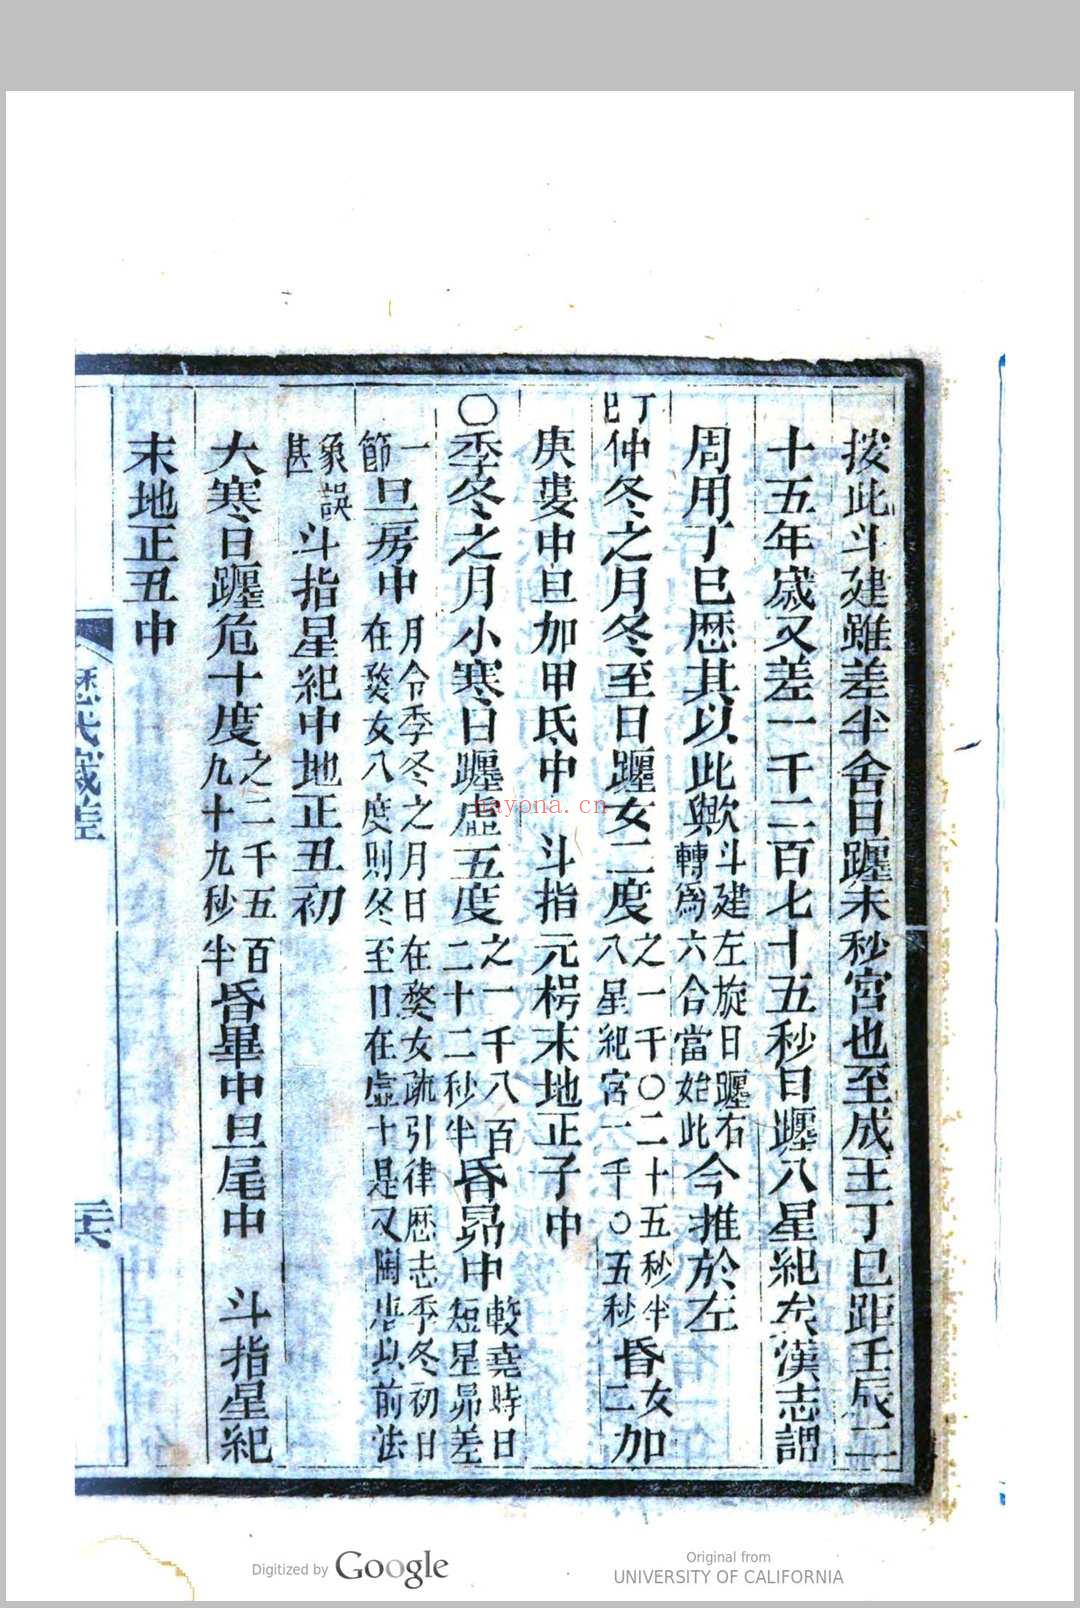 按此斗建雖差半舍日躔未秒宮也至成王丁巳距壬辰二
十五年歲又差一千二百七十五秒日躔八星紀矣漢志謂
周用丁巳歷其以此歟斗建左旋日躔右轉爲六合當始此今推於左
丁巳仲冬之月冬至日躔女二度之一千〇二十五秒半八星紀宮一千〇五秒昏女二加
庚婁中旦加甲氐中　斗指元枵末地正子中
〇季冬之月小寒日躔虛五度之一千八百二十二秒半昏昴中較堯時日短星昴差
一節旦房中月令季冬之月日在婺女疏引律歷志季冬初日在婺女八度則冬至日在虛十是又陶唐以前法
象誤甚斗指星紀中地正丑初
大寒日躔危十度之二千五百九十九秒半昏畢中旦尾中　斗指星紀
末地正丑中
歷代歲差
三六
hayona.cn
Digitized by Google
Original from
UNIVERSITY OF CALIFORNIA